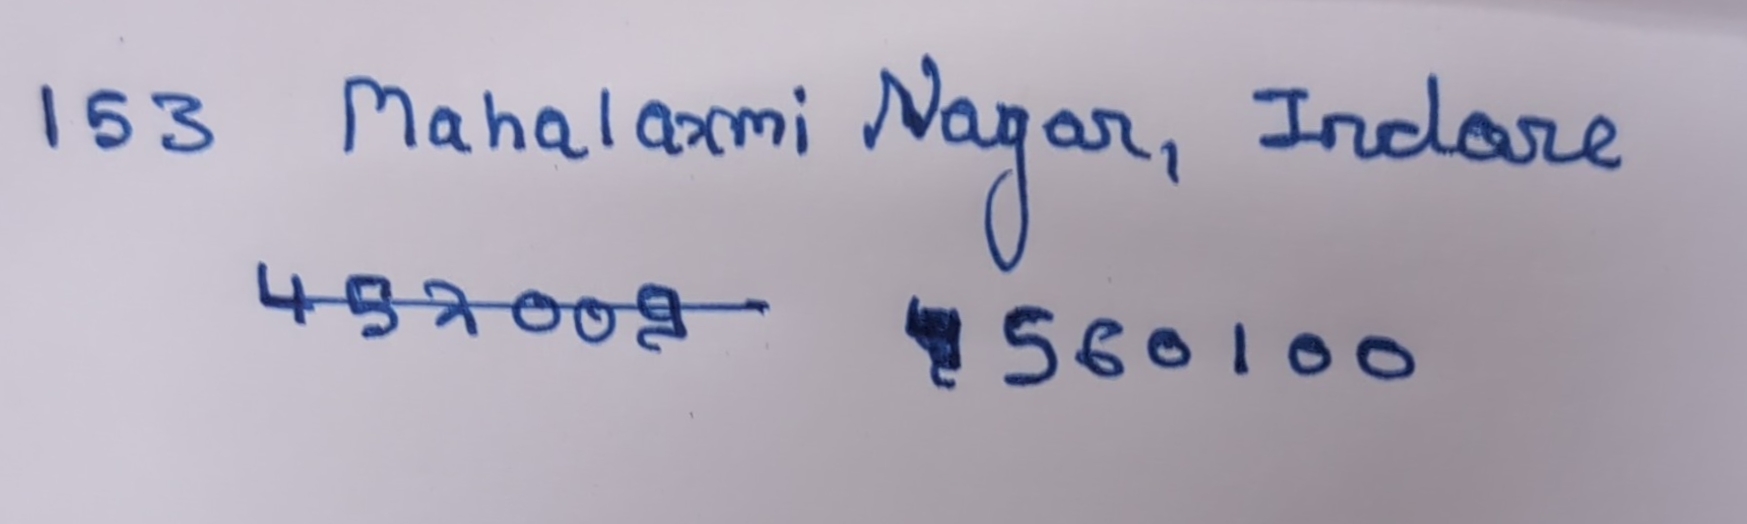 153 Mahalaxmi Nagar, Indore
452009 560100